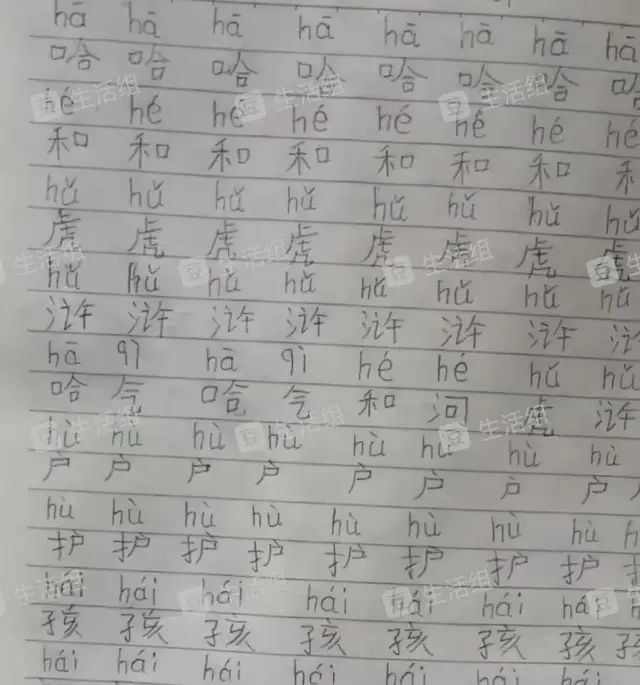 hā hā hā hā hā hā hā hā
哈 哈 哈 哈 哈 哈 哈 哈
hé hé hé hé hé hé hé hé
和 和 和 和 和 和 和 和
hǔ hǔ hǔ hǔ hǔ hǔ hǔ hǔ
虎 虎 虎 虎 虎 虎 虎 虎
hǔ hǔ hǔ hǔ hǔ hǔ hǔ hǔ
浒 浒 浒 浒 浒 浒 浒 浒
hā qì hā qì hé hé hǔ hǔ
哈 气 哈 气 和 河 虎 浒
hù hù hù hù hù hù hù hù
户 户 户 户 户 户 户 户
hù hù hù hù hù hù hù hù h
护 护 护 护 护 护 护 护
hái hái hái hái hái hái hái
孩 孩 孩 孩 孩 孩 孩 孩
hái hái hái hái hái hái hái
豆 生活组